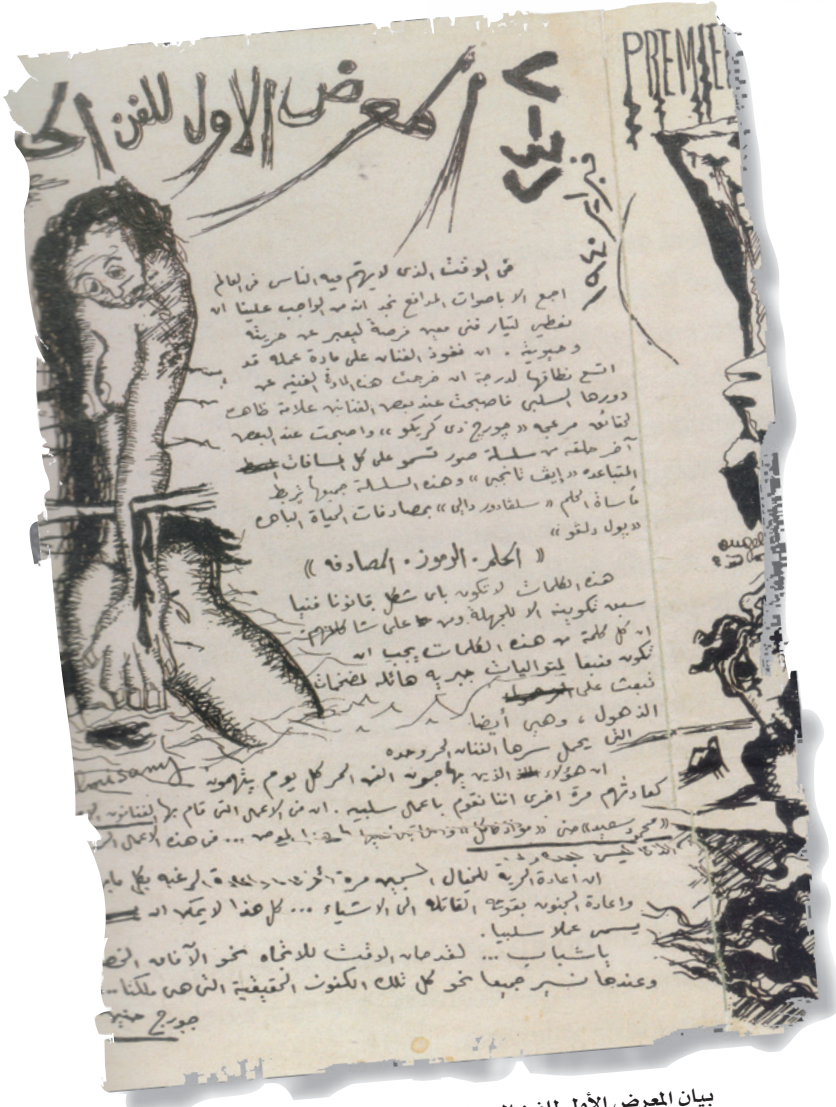 PREMIE
المعرض الاول للفن الحـ
٧-٢٤
فبراير ١٩٤٠
فى الوقت الذى لايهتم فيه الناس فى العالم
اجمع الا باصوات المدافع نجد ان من الواجب علينا ان
نعطي لتيار فنى معين فرصة ليعبر عن حريته
وحيويته . ان نفوذ الفنان على مادة عمله قد
اتسع نطاقها لدرجة ان خرجت هذه المادة الفنيه عن
دورها السلبى فاصبحت عند بعض الفنانين علامة ظاهره
لحقائق مرعبه «جورج دى كريكو» واصبحت عند البعض
آخر حلقه من سلسلة صور تسمو على كل المسافات
المتباعده «إيف تانجى» وهذه السلسلة جميعها تربط
مأساة الحلم «سلفادور دالى» بمصادفات الحياة الباهره
«بول دلفو»
« الحلم . الرموز . المصادفه »
هذه الكلمات لا تكون باى شكل قانونا فنيا
تكوينه الا للجهلة ومن على شاكلتهم
ان كل كلمة من هذه الكلمات يجب ان
تكون منبعا لمتواليات جبريه هائله لمضخمات
تبعث على
الذهول ، وهى أيضا
التى يحمل سرها الفنان الحر وحده
ان هؤلاء الذين يهاجمون الفن الحر كل يوم يتهمون
كعادتهم مرة اخرى اننا نقوم باعمال سلبيه . ان من الاعمال التى قام بها الفنانون
«محمود سعيد» حتى «فؤاد كامل» ... فى هذه الاعمال
ليس
ان اعادة الحرية للخيال السجين مرة أخرى الرغبه بكل
واعادة الجنون بقوته القاتله الى الاشياء ... كل هذا لا يمكن ان
يسمى عملا سلبيا.
ياشباب ... لقد حان الوقت للاتجاه نحو الآفاق
وعندها نسير جميعا نحو كل تلك الكنوز الحقيقية التى هى ملكنا..
جورج حنين
angel
samy
بيان المعرض الأول للفن